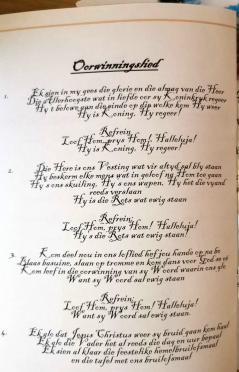 Oorwinningslied
1. Ek sien in my gees die glorie en die alpag van die Heer
Die Allerhoogste wat in liefde oor sy Koninkryk regeer
Hy t belowe aan die einde op die wolke kom Hy weer
Hy is Koning. Hy regeer!
Refrein:
Loof Hom, prys Hom! Halleluja!
Hy is Koning. Hy regeer!
2. Die Here is ons Vesting wat vir altyd sal bly staan
Hy beskerm elke mens wat in geloof na Hom toe gaan
Hy s ons skuiling. Hy s ons wapen. Hy het die vyand
reeds verslaan
Hy is die Rots wat ewig staan
Refrein:
Loof Hom, prys Hom! Halleluja!
Hy s die Rots wat ewig staan!
3. Kom deel nou in ons loflied hef jou hande op na bo
Blaas basuine, slaan op tromme en kom dans voor God se
Kom leef in die oorwinning van sy Woord waarin ons glo
Want sy Woord sal ewig staan
Refrein:
Loof Hom, prys Hom! Halleluja!
Want sy Woord sal ewig staan.
4. Ek glo dat Jesus Christus weer sy bruid gaan kom haal
Ek glo die Vader het al reeds die dag en uur bepaal
Ek sien al klaar die feestelike hemelbruilofsmaal
en die tafel met ons bruilofsmaal